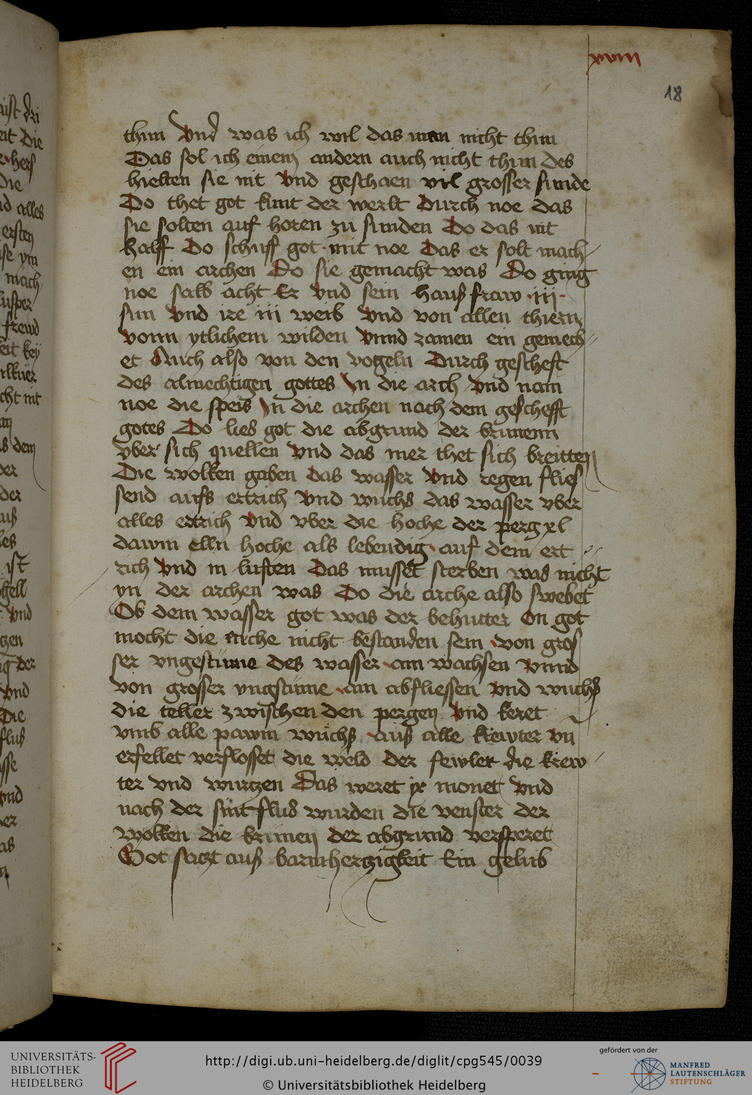 xviii
18
thun Vnd was ich wil das man nicht thun
Das sol ich einem andern auch nicht thun des
hielten sie nit Vnd geschaen vil grosser sunde
Do thet got kunt der werlt Durch noe das
sie solten auf horen zu sunden Do das nit
halff Do schuff got mit noe das er solt mach
en ein archen Do sie gemacht was Do ging
noe salb acht Er Vnd sein hauß fraw iij
sun Vnd ire iii weib Vnd von allen thiern
vonn ytlichem wilden Vnnd zamen ein gemech
et Auch also von den vogeln Durch gescheft
des almechtigen gottes In die arch Vnd nam
noe die speis In die archen nach dem geschefft
gotes Do lies got die abgrund der brunenn
vber sich quellen Vnd das mer thet sich breitten
Die wolken gaben das wasser Vnd regen flies
send aufs ertrich Vnd wuchs das wasser vber
alles ertrich Vnd vber die hoche der perg xl
dawm elln hoche als lebendig auf dem ert
rich Vnd in luften Das musset sterben was nicht
yn der archen was Do die arche also swebet
Ob dem wasser got was der behutter On got
mocht die arche nicht bestanden sein von gros
ser vngestume des wasser am wachsen Vnnd
von grosser vngstume am abfliessen Vnd wuchß
die teller zwischen den pergen Vnd keret
vmb alle pawm wuchß auß alle krewter vn
erfellet verflosset die weld der fewlet die krew
ter vnd wurtzen Das weret ix monet Vnd
nach der sintflus wurden die venster der
wolken die brunen der abgrund versperet
Got satzt auß barmhertzigkeit Ein gelub
UNIVERSITÄTS-
BIBLIOTHEK
HEIDELBERG
http://digi.ub.uni-heidelberg.de/diglit/cpg545/0039
© Universitätsbibliothek Heidelberg
gefördert von der
MANFRED
LAUTENSCHLÄGER
STIFTUNG